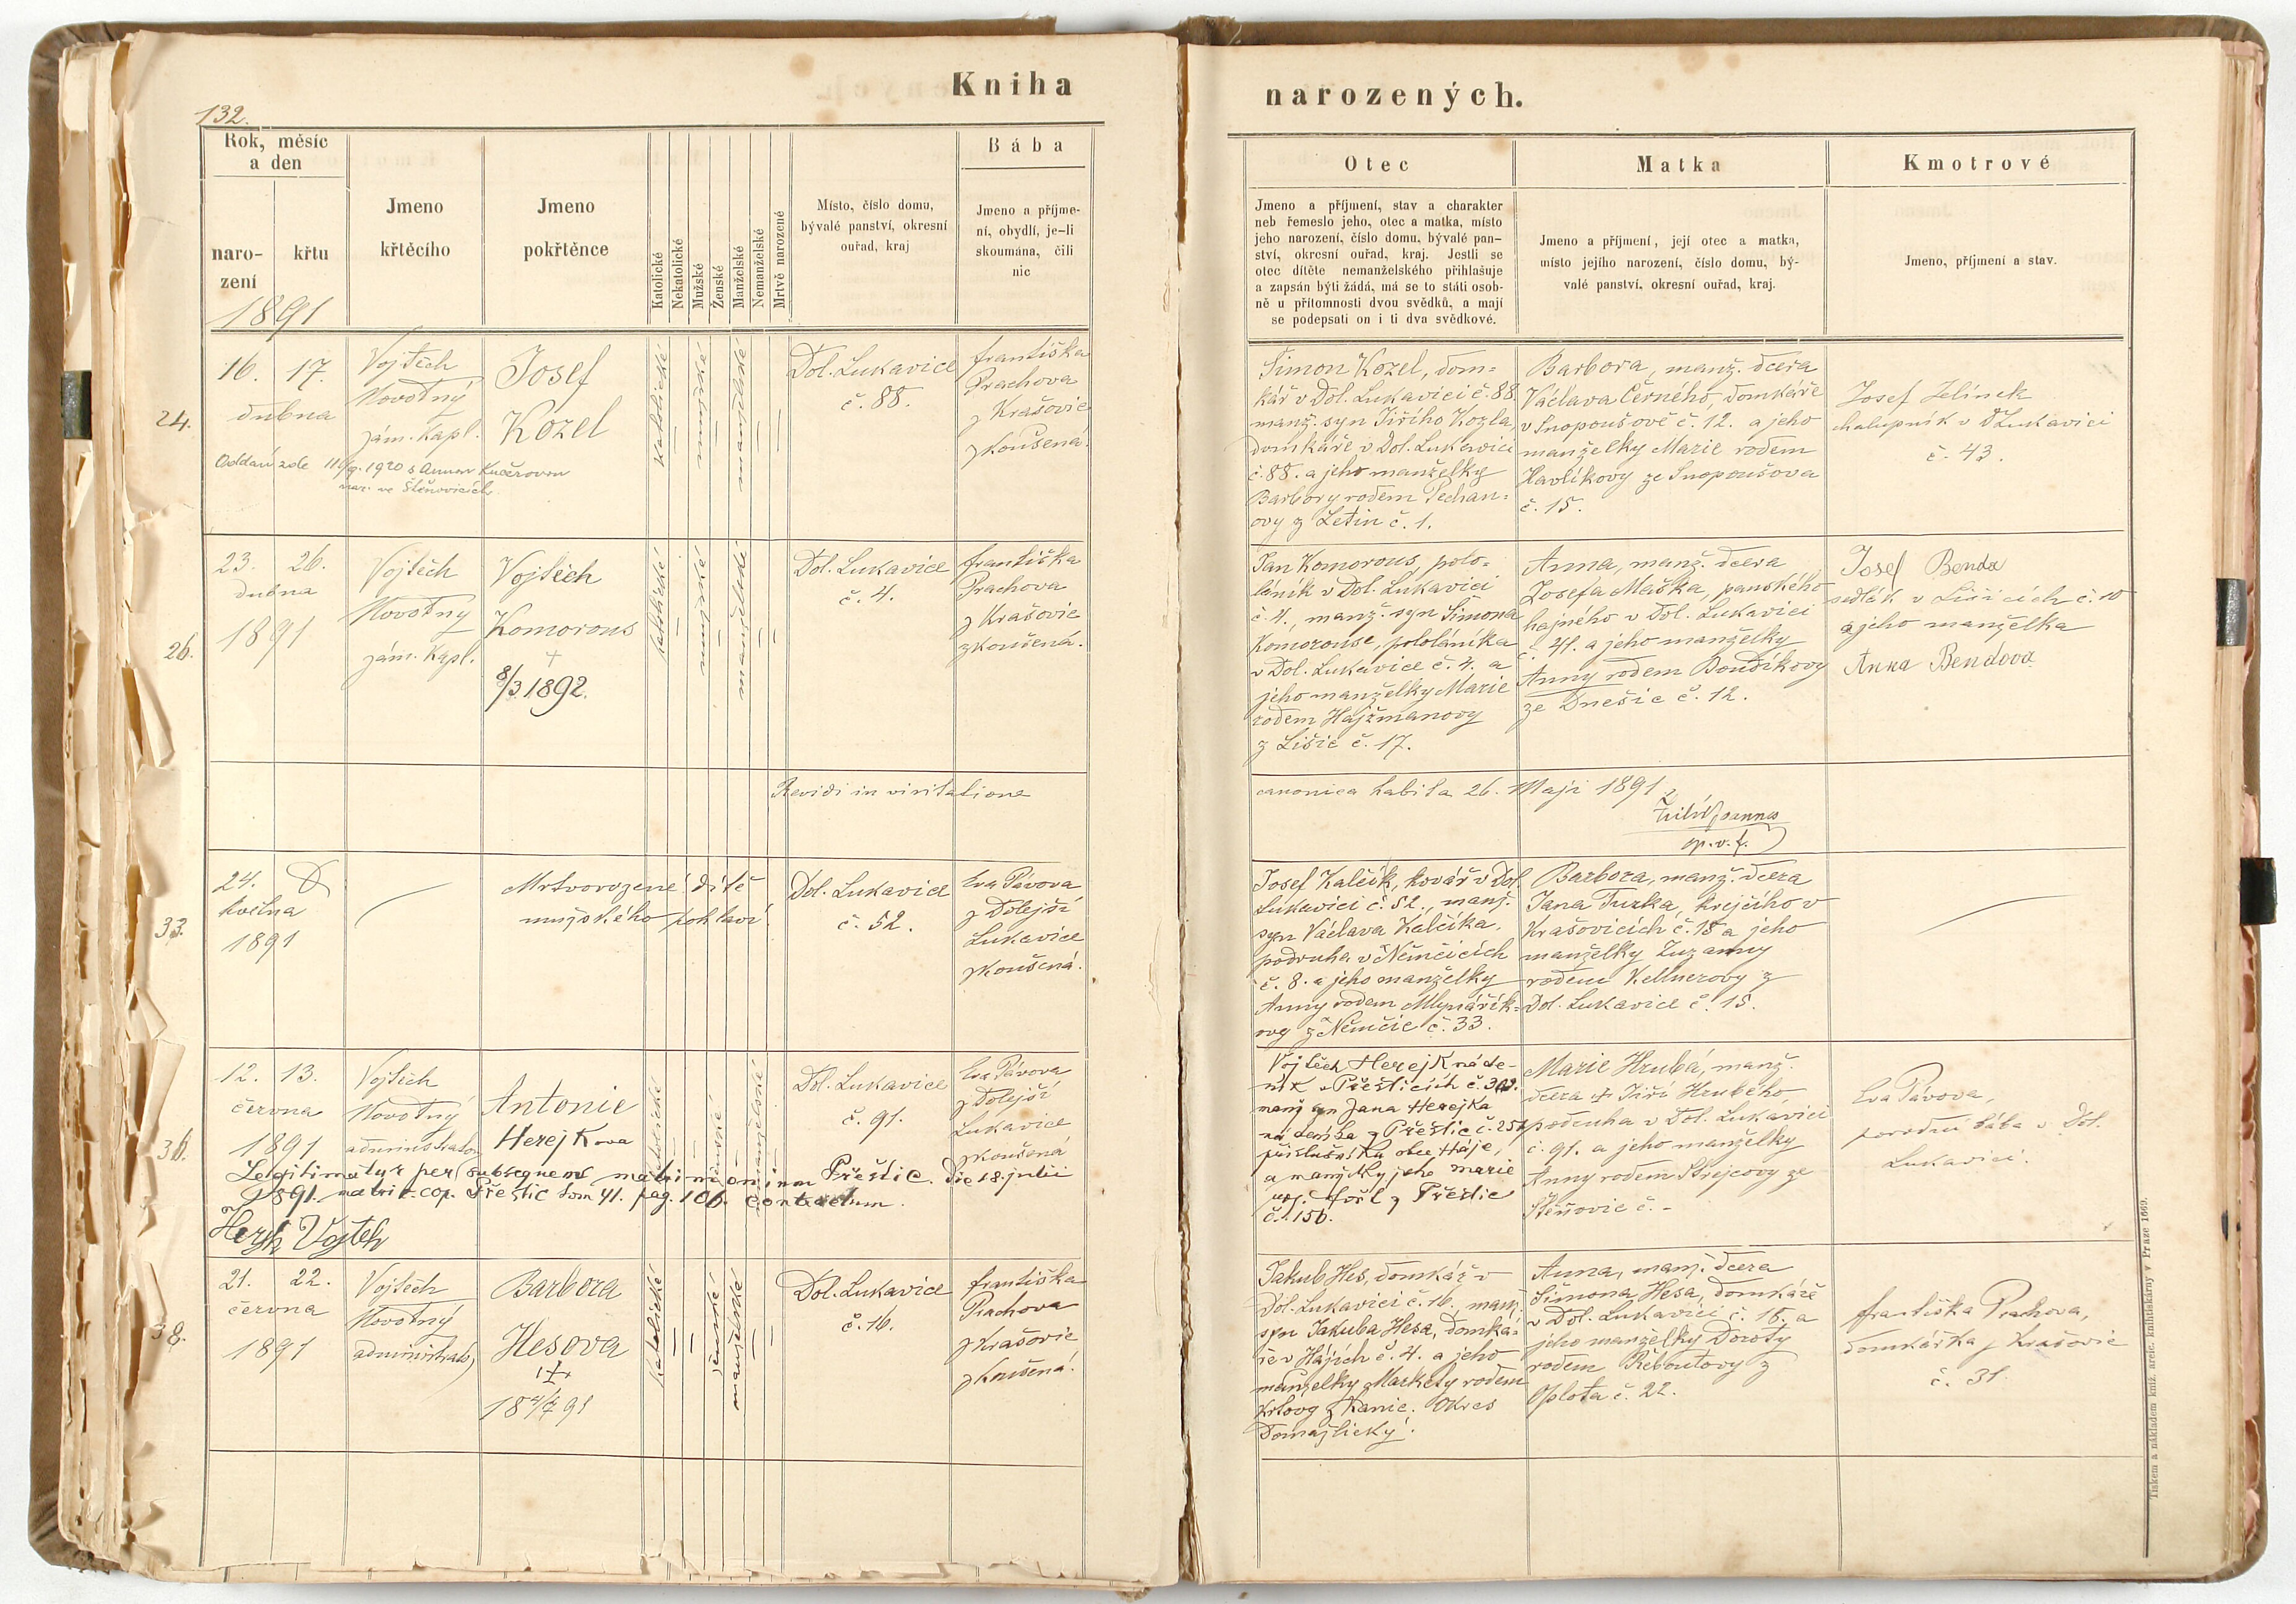 132.
Kniha
narozených.
Rok, měsíc
a den
naro-
zení
křtu
1891
Jmeno
křtěcího
Jmeno
pokřtěnce
Katolické
Nekatolické
Mužské
Ženské
Manželské
Nemanželské
Mrtvě narozené
Místo, číslo domu,
bývalé panství, okresní
ouřad, kraj
Bába
Jmeno a příjme-
ní, obydlí, je-li
skoumána, čili
nic
Otec
Jmeno a příjmení, stav a charakter
neb řemeslo jeho, otec a matka, místo
jeho narození, číslo domu, bývalé pan-
ství, okresní ouřad, kraj. Jestli se
otec dítěte nemanželského přihlašuje
a zapsán býti žádá, má se to státi osob-
ně u přítomnosti dvou svědků, a mají
se podepsati on i ti dva svědkové.
Matka
Jmeno a příjmení, její otec a matka,
místo jejího narození, číslo domu, bý-
valé panství, okresní ouřad, kraj.
Kmotrové
Jmeno, příjmení a stav.
24.
16. 17.
dubna
Vojtěch
Novotný
zám. kapl.
Josef
Kozel
katolické
mužské
manželské
Dol. Lukavice
č. 88.
Františka
Prachova
z Krašovic
zkoušená.
Oddán zde 11/9. 1920 s Annou Kučerovou
nar. ve Štěnovicích
Šimon Kozel, dom=
kář v Dol. Lukavici č. 88.
manž. syn Jiřího Kozla
domkáře v Dol. Lukavici
č. 88. a jeho manželky
Barbory rodem Pechan=
ovy z Letin č. 1.
Barbora, manž. dcera
Václava Černého domkáře
v Snopoušově č. 12. a jeho
manželky Marie rodem
Havlíkovy ze Snopoušova
č. 15.
Josef Jelínek
chalupník v D Lukavici
č. 43.
26.
23. 26.
dubna
1891
Vojtěch
Novotný
zám. kapl.
Vojtěch
Komorous
+
8/3 1892.
katolické
mužské
manželské
Dol. Lukavice
č. 4.
Františka
Prachova
z Krašovic
zkoušená.
Jan Komorous, polo=
láník v Dol. Lukavici
č. 4., manž. syn Šimona
Komorouse, pololáníka
v Dol. Lukavice č. 4. a
jeho manželky Marie
rodem Hajžmanovy
z Lišic č. 17.
Anna, manž. dcera
Josefa Maška, panského
hajného v Dol. Lukavici
č. 41. a jeho manželky
Anny rodem Boudíkovy
ze Dnešic č. 12.
Josef Benda
sedlák v Lišicích č. 10
a jeho manželka
Anna Bendova
Revidi in visitatione
canonica habita 26. Maji 1891
33.
24.
května
1891
Mrtvorozené dítě
mužského pohlaví.
Dol. Lukavice
č. 52.
Eva Pávová
z Dolejší
Lukavice
zkoušená.
Josef Kalčík, kovář v Dol.
Lukavici č. 52., manž.
syn Václava Kalčíka,
podruha v Němčicích
č. 8. a jeho manželky
Anny rodem Mlynařík=
ovy z Němčic č. 33.
Barbora, manž. dcera
Jana Turka, krejčího v
Krašovicích č. 18 a jeho
manželky Zuzanny
rodem Kellnerovy z
Dol. Lukavice č. 15.
36.
12. 13.
června
1891
Vojtěch
Novotný
administrator
Antonie
Herejkova
katolické
ženské
nemanželské
Dol. Lukavice
č. 91.
Eva Pávova
z Dolejší
Lukavice
zkoušená
Legitimatur per subsequens matrimonium Přeštic. die 18. julii
1891. matrik. cop. Přeštic tom 41. pag. 106. contractum.
Herejk Vojtěch
Vojtěch Herejk náde-
ník v Přešticích č. 302.
manž syn Jana Herejka
nádeníka z Přeštic č. 252
příslušníka obce Háje,
a manželky jeho Marie
z Přeštic
č. 156.
Marie Hrubá, manž.
dcera + Jiří Hrubého,
podruha v Dol. Lukavici
č. 91. a jeho manželky
Anny rodem Strejcovy ze
Štěnovic č. -
Eva Pávova,
porodní bába v Dol.
Lukavici.
38.
21. 22.
června
1891
Vojtěch
Novotný
administrator
Barbora
Hesova
+
katolické
ženské
manželské
Dol. Lukavice
č. 16.
Františka
Prachova
z Krašovic
zkoušená.
Jakub Hes, domkář v
Dol. Lukavici č. 16., manž.
syn Jakuba Hesa, domká-
ře v Hájích č. 4. a jeho
manželky Markety rodem
z Kanic. Okres
Domažlický.
Anna, manž. dcera
Šimona Hesa, domkáře
v Dol. Lukavici č. 16. a
jeho manželky Doroty
rodem Řeboutovy z
Oplota č. 22.
Františka Prachova,
domkářka z Krašovic
č. 31.
Tiskem a nákladem kníž. arcib. knihtiskárny v Praze 1669.